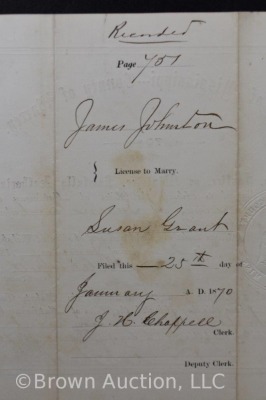 Recorded
Page 751
James Johnston
} License to Marry.
Susan Grant
Filed this 25th day of
January A. D. 1870
J. H. Chappell
Clerk.
Deputy Clerk.
©Brown Auction, LLC